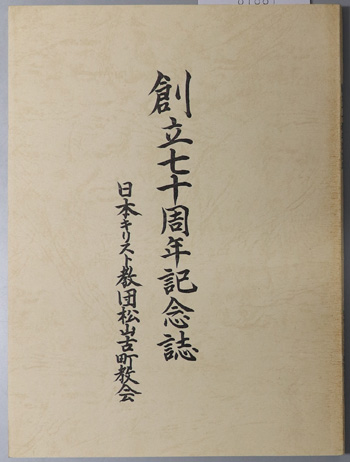 創立七十周年記念誌
日本キリスト教団松山古町教会